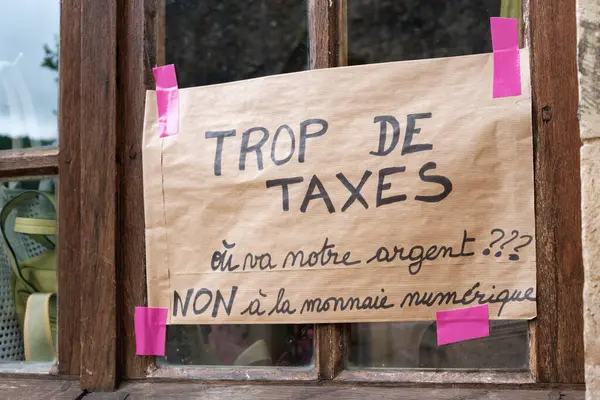 TROP DE
TAXES
où va notre argent ???
NON à la monnaie numérique